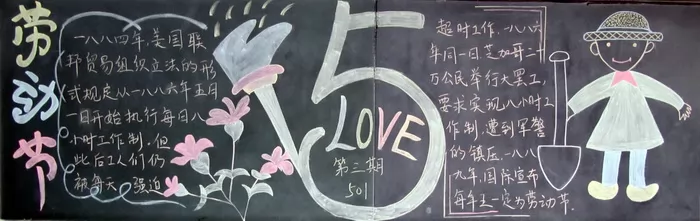 劳动节
一八八四年,美国联
邦贸易组织立法的形
式规定从一八八六年五月
一日开始执行每日八
小时工作制,但
此后工人们仍
被每天 强迫
5
LOVE
第三期
501
超时工作,一八八六
年同一日芝加哥二十
万公民举行大罢工,
要求实现八小时工
作制,遭到军警
的镇压,一八八
九年,国际宣布
每年五一定为劳动节.